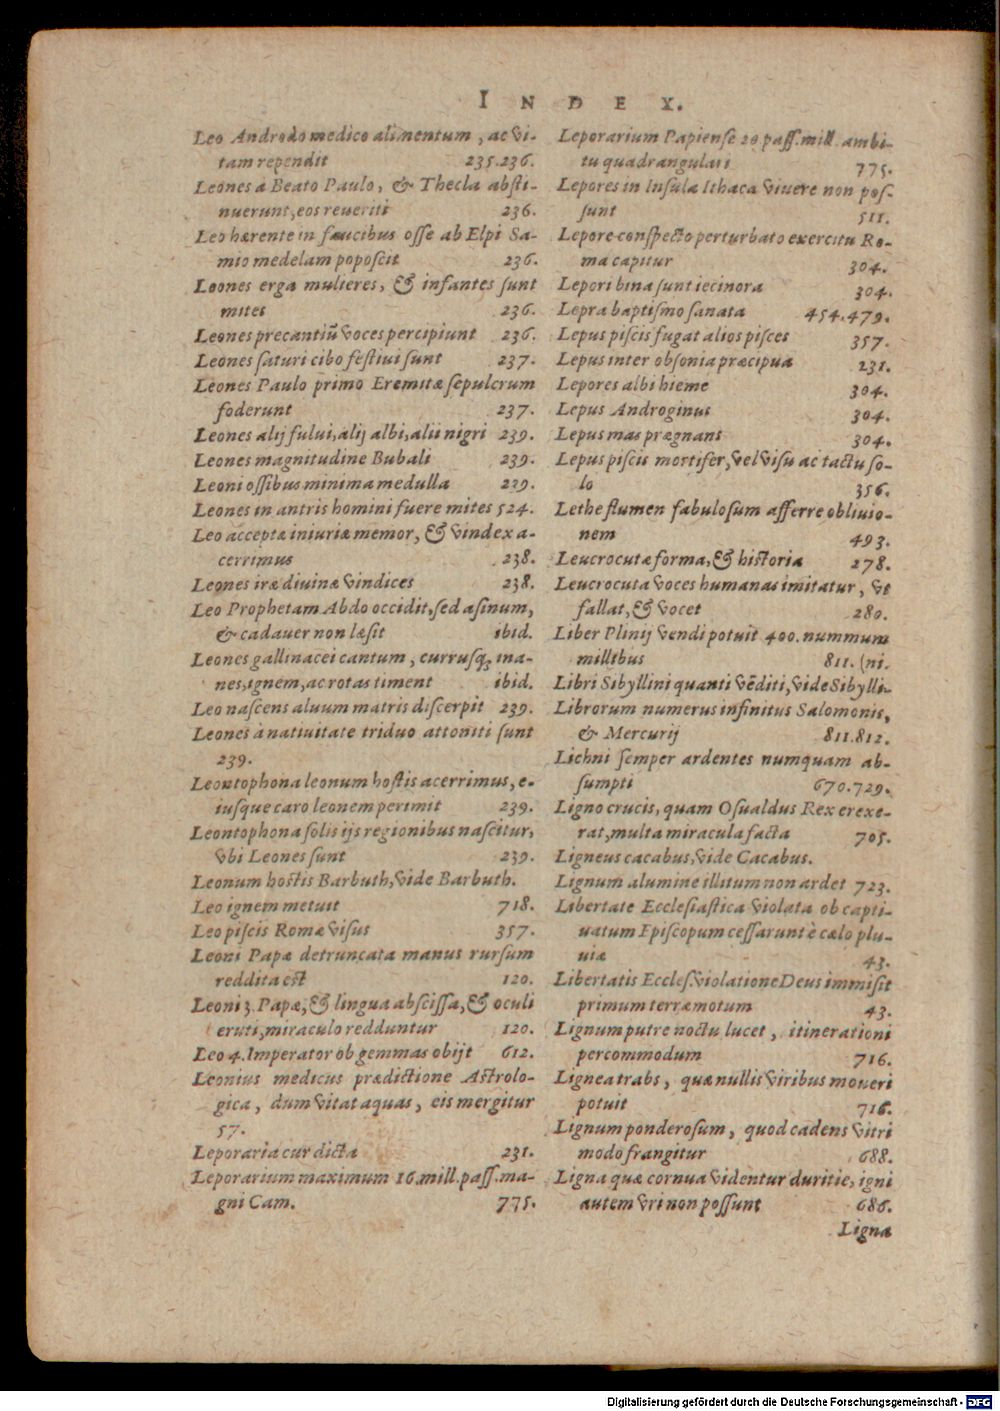 INDEX.
Leo Androdo medico alimentum, ac vi-
tam rependit 235.236.
Leones à Beato Paulo, & Thecla absti-
nuerunt, eos reueriti 236.
Leo hærente in faucibus osse ab Elpi Sa-
mio medelam poposcit 236.
Leones erga mulieres, & infantes sunt
mites 236.
Leones precantiũ voces percipiunt 236.
Leones saturi cibo festiui sunt 237.
Leones Paulo primo Eremitæ sepulcrum
foderunt 237.
Leones alij fului, alij albi, alii nigri 239.
Leones magnitudine Bubali 239.
Leoni ossibus minima medulla 239.
Leones in antris homini fuere mites 524.
Leo acceptæ iniuriæ memor, & vindex a-
cerrimus 238.
Leones iræ diuinæ vindices 238.
Leo Prophetam Abdo occidit, sed asinum,
& cadauer non læsit ibid.
Leones gallinacei cantum, currusq; ina-
nes, ignem, ac rotas timent ibid.
Leo nascens aluum matris discerpit 239.
Leones à natiuitate triduo attoniti sunt
239.
Leontophona leonum hostis acerrimus, e-
iusque caro leonem perimit 239.
Leontophona solis ijs regionibus nascitur,
vbi Leones sunt 239.
Leonum hostis Barbuth, vide Barbuth.
Leo ignem metuit 718.
Leo piscis Romæ visus 357.
Leoni Papæ detruncata manus rursum
reddita est 120.
Leoni 3. Papæ, & lingua abscissa, & oculi
eruti, miraculo redduntur 120.
Leo 4. Imperator ob gemmas obijt 612.
Leonius medicus prædictione Astrolo-
gica, dum vitat aquas, eis mergitur
57.
Leporaria cur dicta 231.
Leporarium maximum 16. mill. pass. ma-
gni Cam. 775.
Leporarium Papiense 20 pass. mill. ambi-
tu quadrangulari 775.
Lepores in Insula Ithaca viuere non pos-
sunt 511.
Lepore conspecto perturbato exercitu Ro-
ma capitur 304.
Lepori bina sunt iecinora 304.
Lepra baptismo sanata 454.479.
Lepus piscis fugat alios pisces 357.
Lepus inter obsonia præcipua 231.
Lepores albi hieme 304.
Lepus Androginus 304.
Lepus mas prægnans 304.
Lepus piscis mortifer, vel visu ac tactu so-
lo 356.
Lethe flumen fabulosum afferre obliuio-
nem 493.
Leucrocutæ forma, & historia 278.
Leucrocuta voces humanas imitatur, vt
fallat, & vocet 280.
Liber Plinij vendi potuit 400. nummum
millibus 811. (ni.
Libri Sibyllini quanti vẽditi, vide Sibylli-
Librorum numerus infinitus Salomonis,
& Mercurij 811.812.
Lichni semper ardentes numquam ab-
sumpti 670.729.
Ligno crucis, quam Osualdus Rex erexe-
rat, multa miracula facta 705.
Ligneus cacabus, vide Cacabus.
Lignum alumine illitum non ardet 723.
Libertate Ecclesiastica violata ob capti-
uatum Episcopum cessarunt è cælo plu-
uiæ 43.
Libertatis Eccles. violatione Deus immisit
primum terræmotum 43.
Lignum putre noctu lucet, itineranti
percommodum 716.
Lignea trabs, quæ nullis viribus moueri
potuit 716.
Lignum ponderosum, quod cadens vitri
modo frangitur 688.
Ligna quæ cornua videntur duritie, igni
autem vri non possunt 686.
Ligna
Digitalisierung gefördert durch die Deutsche Forschungsgemeinschaft - DFG